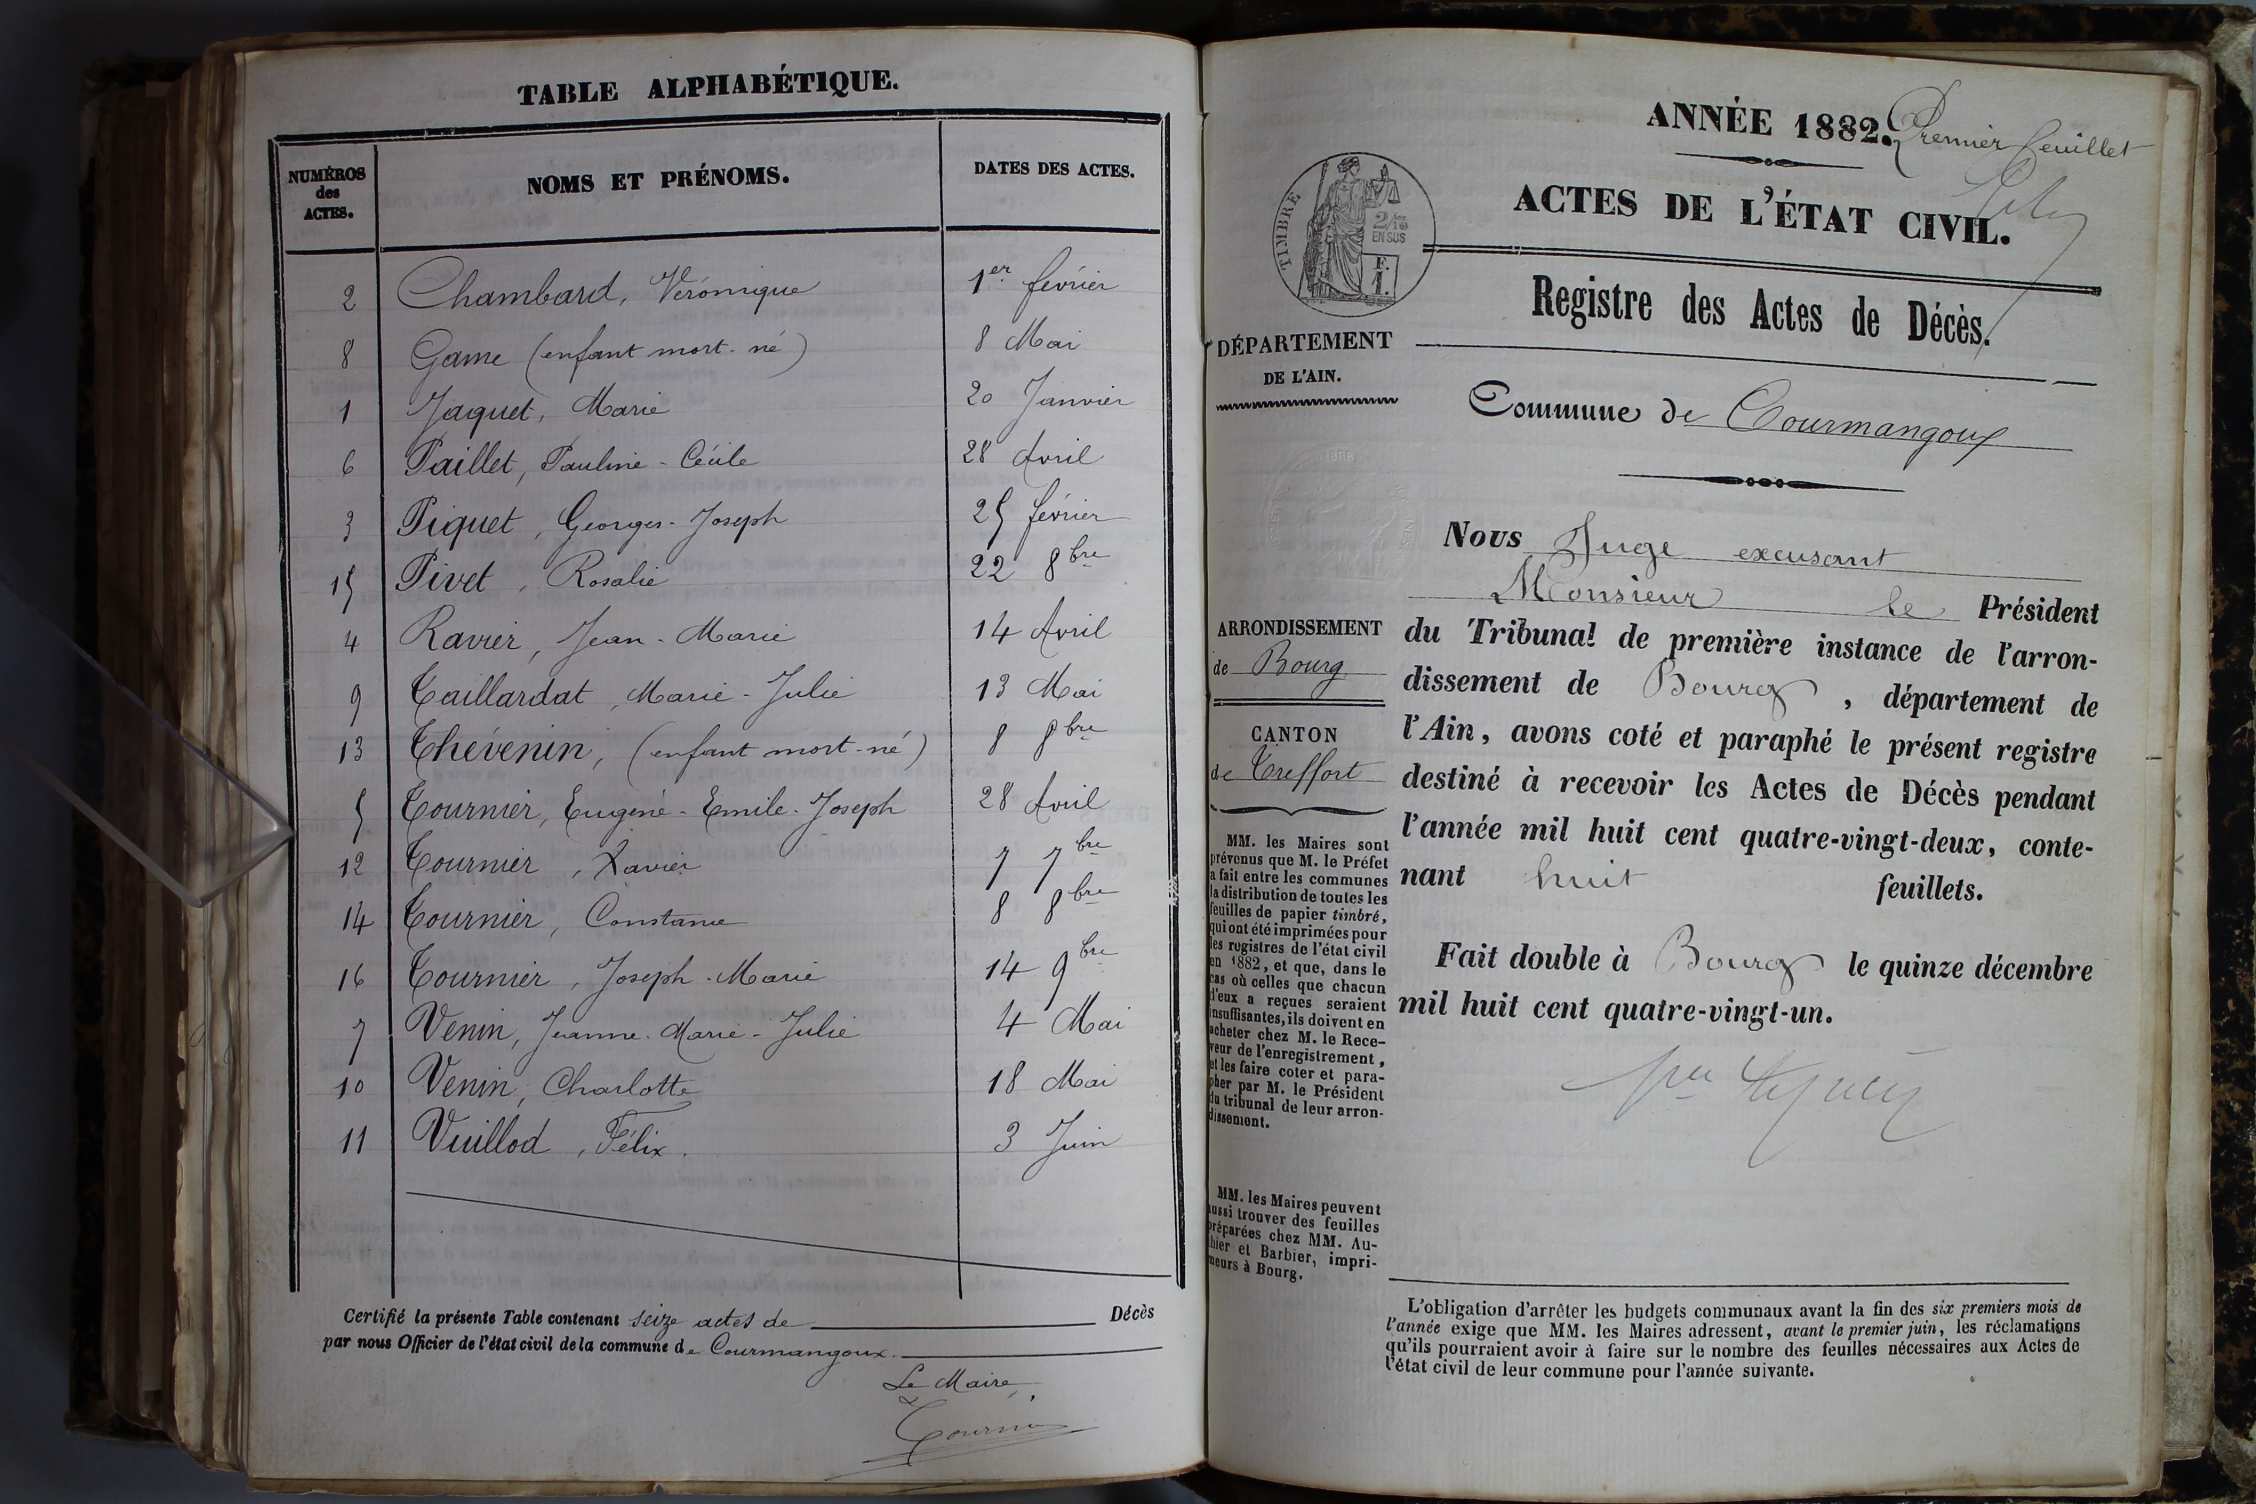 TABLE ALPHABÉTIQUE.
NUMÉROS
des
ACTES.
NOMS ET PRÉNOMS.
DATES DES ACTES.
2 Chambard, Véronique 1er février
8 Game (enfant mort-né) 8 Mai
1 Jaquet, Marie 20 Janvier
6 Paillet, Pauline-Cécile 28 Avril
3 Piquet, Georges-Joseph 25 février
15 Pivet, Rosalie 22 8bre
4 Ravier, Jean-Marie 14 Avril
9 Taillardat, Marie-Julie 13 Mai
13 Thévenin, (enfant mort-né) 8 8bre
5 Tournier, Eugène-Emile-Joseph 28 Avril
12 Tournier, Xavier 7 7bre
14 Tournier, Constance 8 8bre
16 Tournier, Joseph-Marie 14 9bre
7 Venin, Jeanne-Marie-Julie 4 Mai
10 Venin, Charlotte 18 Mai
11 Vuillod, Félix. 3 Juin
Certifié la présente Table contenant seize actes de Décès
par nous Officier de l'état civil de la commune de Courmangoux.
Le Maire,
Tournier
ANNÉE 1882.
Premier feuillet
ACTES DE L'ÉTAT CIVIL.
TIMBRE
2/10
EN SUS
F.
1.
Registre des Actes de Décès.
DÉPARTEMENT
DE L'AIN.
Commune de Courmangoux
Nous Juge excusant
Monsieur le Président
du Tribunal de première instance de l'arron-
dissement de Bourg, département de
l'Ain, avons coté et paraphé le présent registre
destiné à recevoir les Actes de Décès pendant
l'année mil huit cent quatre-vingt-deux, conte-
nant huit feuillets.
Fait double à Bourg le quinze décembre
mil huit cent quatre-vingt-un.
ARRONDISSEMENT
de Bourg
CANTON
de Treffort
MM. les Maires sont
prévenus que M. le Préfet
a fait entre les communes
la distribution de toutes les
feuilles de papier timbré,
qui ont été imprimées pour
les registres de l'état civil
en 1882, et que, dans le
cas où celles que chacun
d'eux a reçues seraient
insuffisantes, ils doivent en
acheter chez M. le Rece-
veur de l'enregistrement,
et les faire coter et para-
pher par M. le Président
du tribunal de leur arron-
dissement.
MM. les Maires peuvent
aussi trouver des feuilles
préparées chez MM. Au-
thier et Barbier, impri-
meurs à Bourg.
L'obligation d'arrêter les budgets communaux avant la fin des six premiers mois de
l'année exige que MM. les Maires adressent, avant le premier juin, les réclamations
qu'ils pourraient avoir à faire sur le nombre des feuilles nécessaires aux Actes de
l'état civil de leur commune pour l'année suivante.